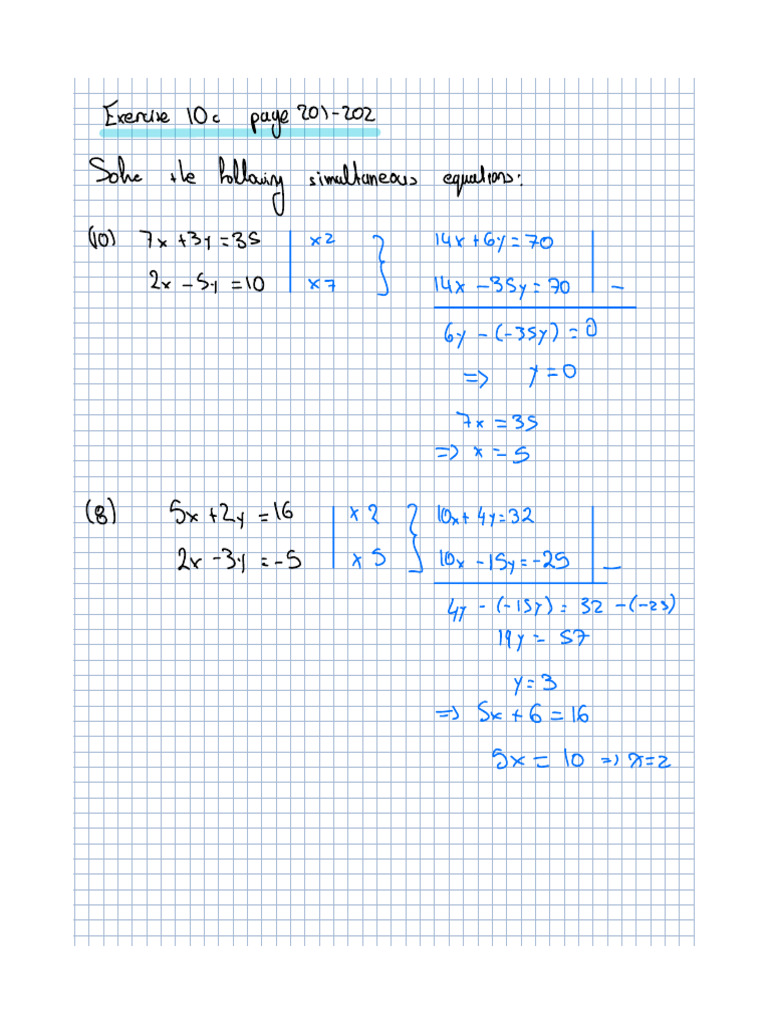 Exercise 10c page 201-202
Solve the following simultaneous equations:
(10) 7x + 3y = 35 | x2 } 14x + 6y = 70 |
2x - 5y = 10 | x7 } 14x - 35y = 70 | -
6y - (-35y) = 0
=> y = 0
7x = 35
=> x = 5
(8) 5x + 2y = 16 | x 2 } 10x + 4y = 32 |
2x - 3y = -5 | x 5 } 10x - 15y = -25 | -
4y - (-15y) = 32 - (-25)
19y = 57
y = 3
=> 5x + 6 = 16
5x = 10 => x = 2